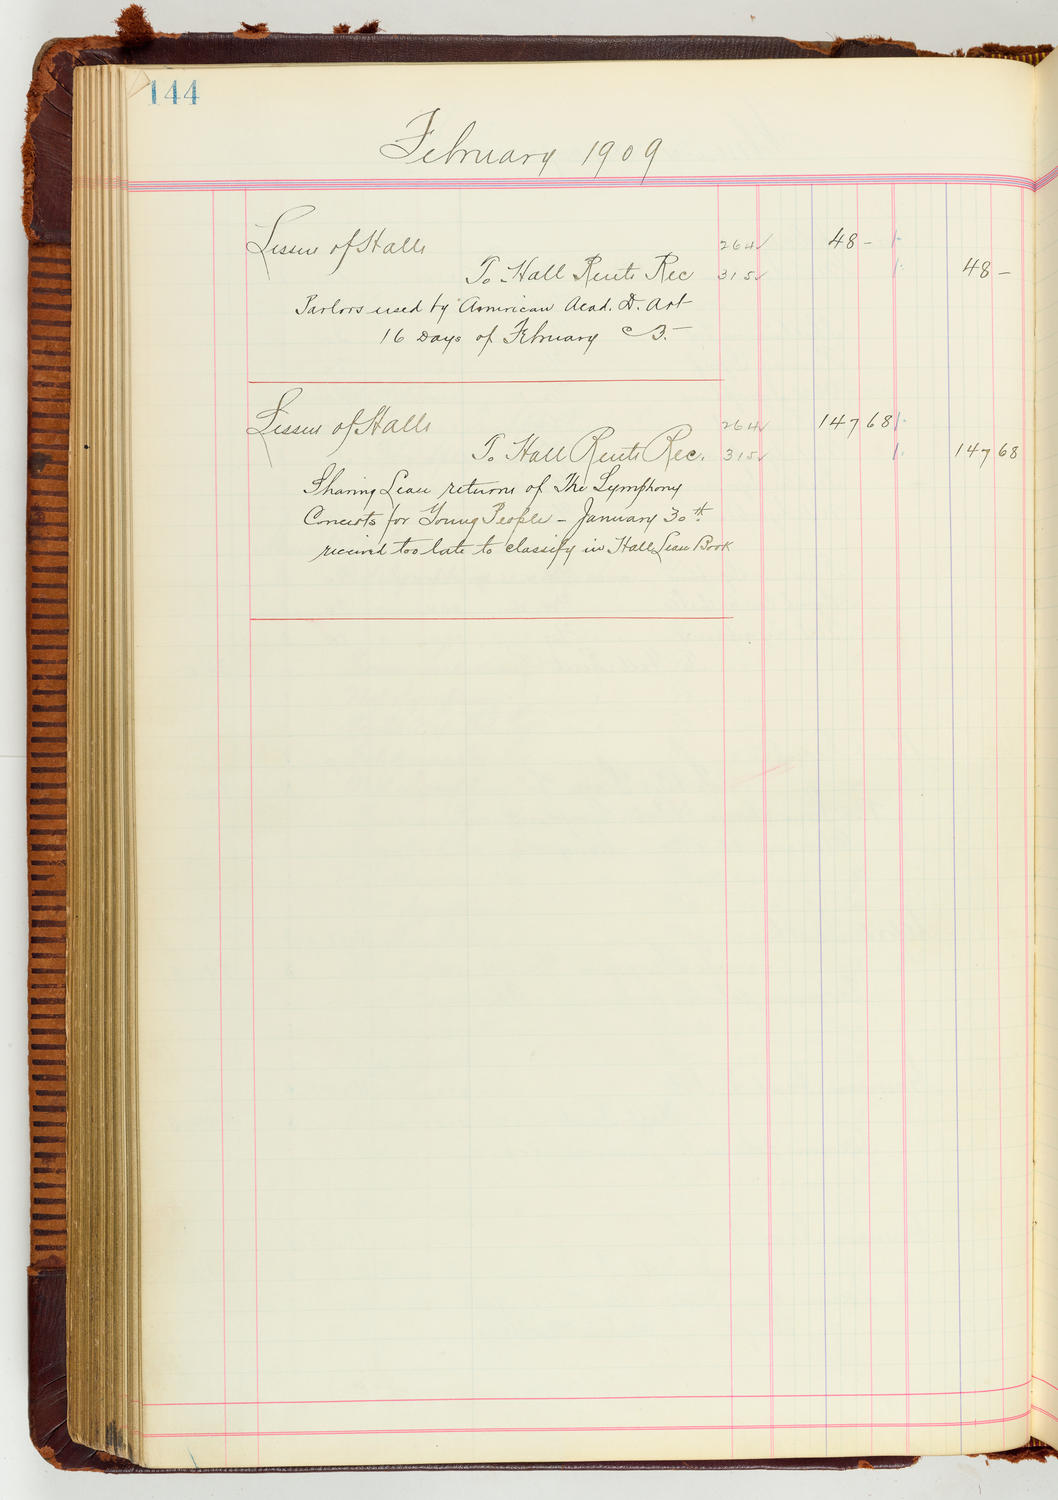 144
February 1909
Lessees of Halls 264 ✓ 48 –
To Hall Rents Rec 315 ✓ 48 –
Parlors used by American Acad. D. Art
16 Days of February @ 3. –
Lessees of Halls 264 ✓ 147 68
To Hall Rents Rec. 315 ✓ 147 68
Sharing Lease returns of The Symphony
Concerts for Young People – January 30th
received too late to classify in Hall Lease Book